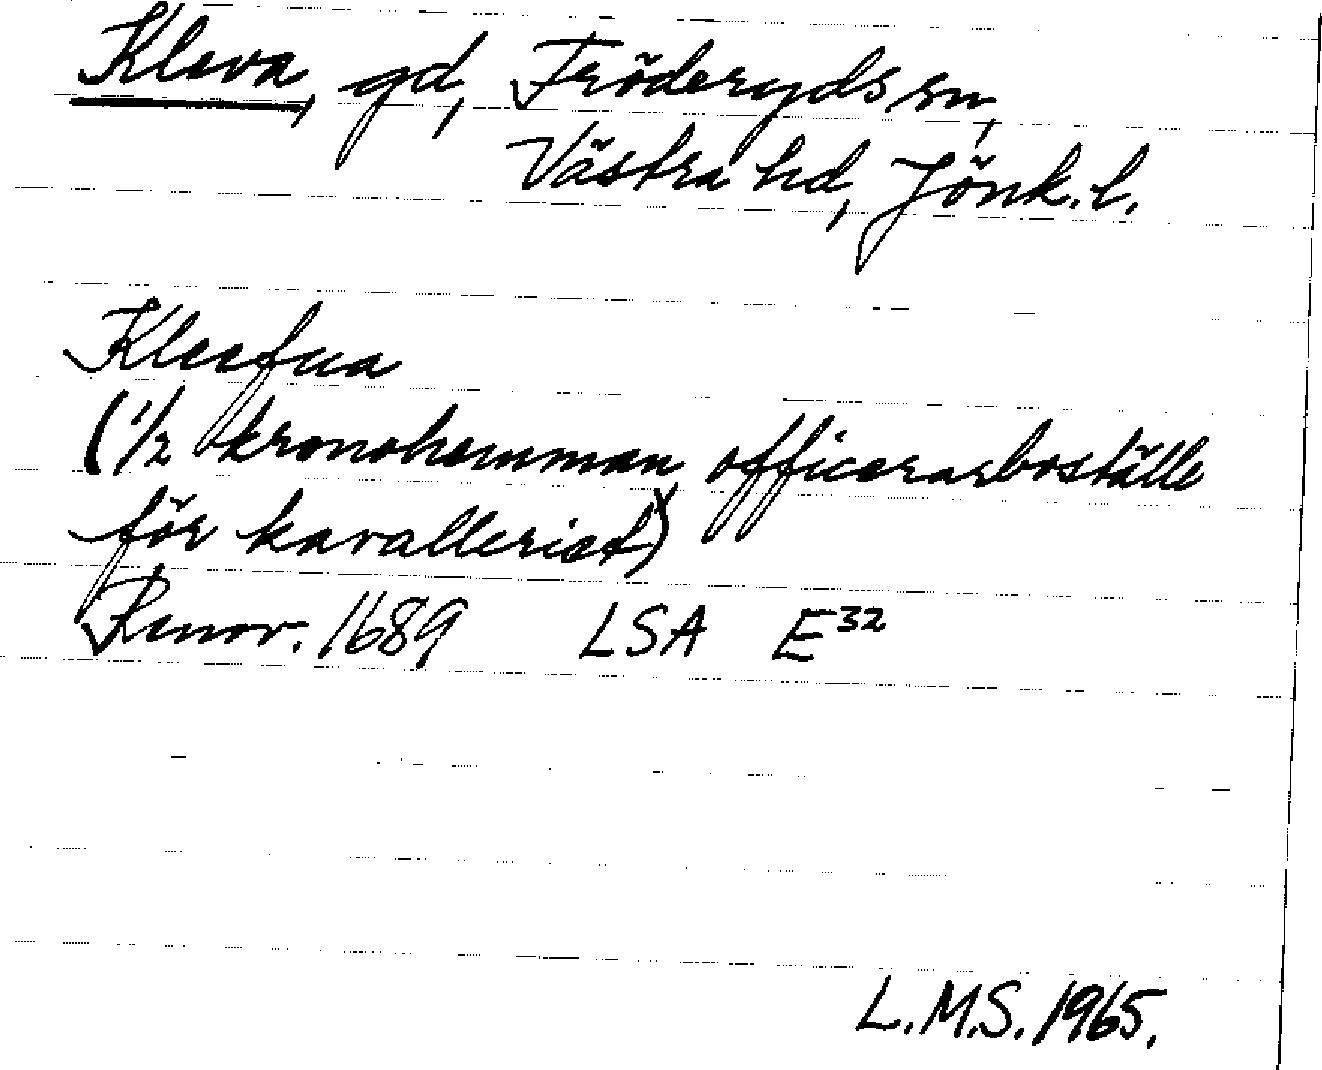 Kleva, gd, Fröderyds sn,
Västra hd, Jönk. l.
Kleefua
(1/2 kronohemman, officersarboställe
för kavalleriet)
Renov. 1689 LSA E³²
L.M.S. 1965.